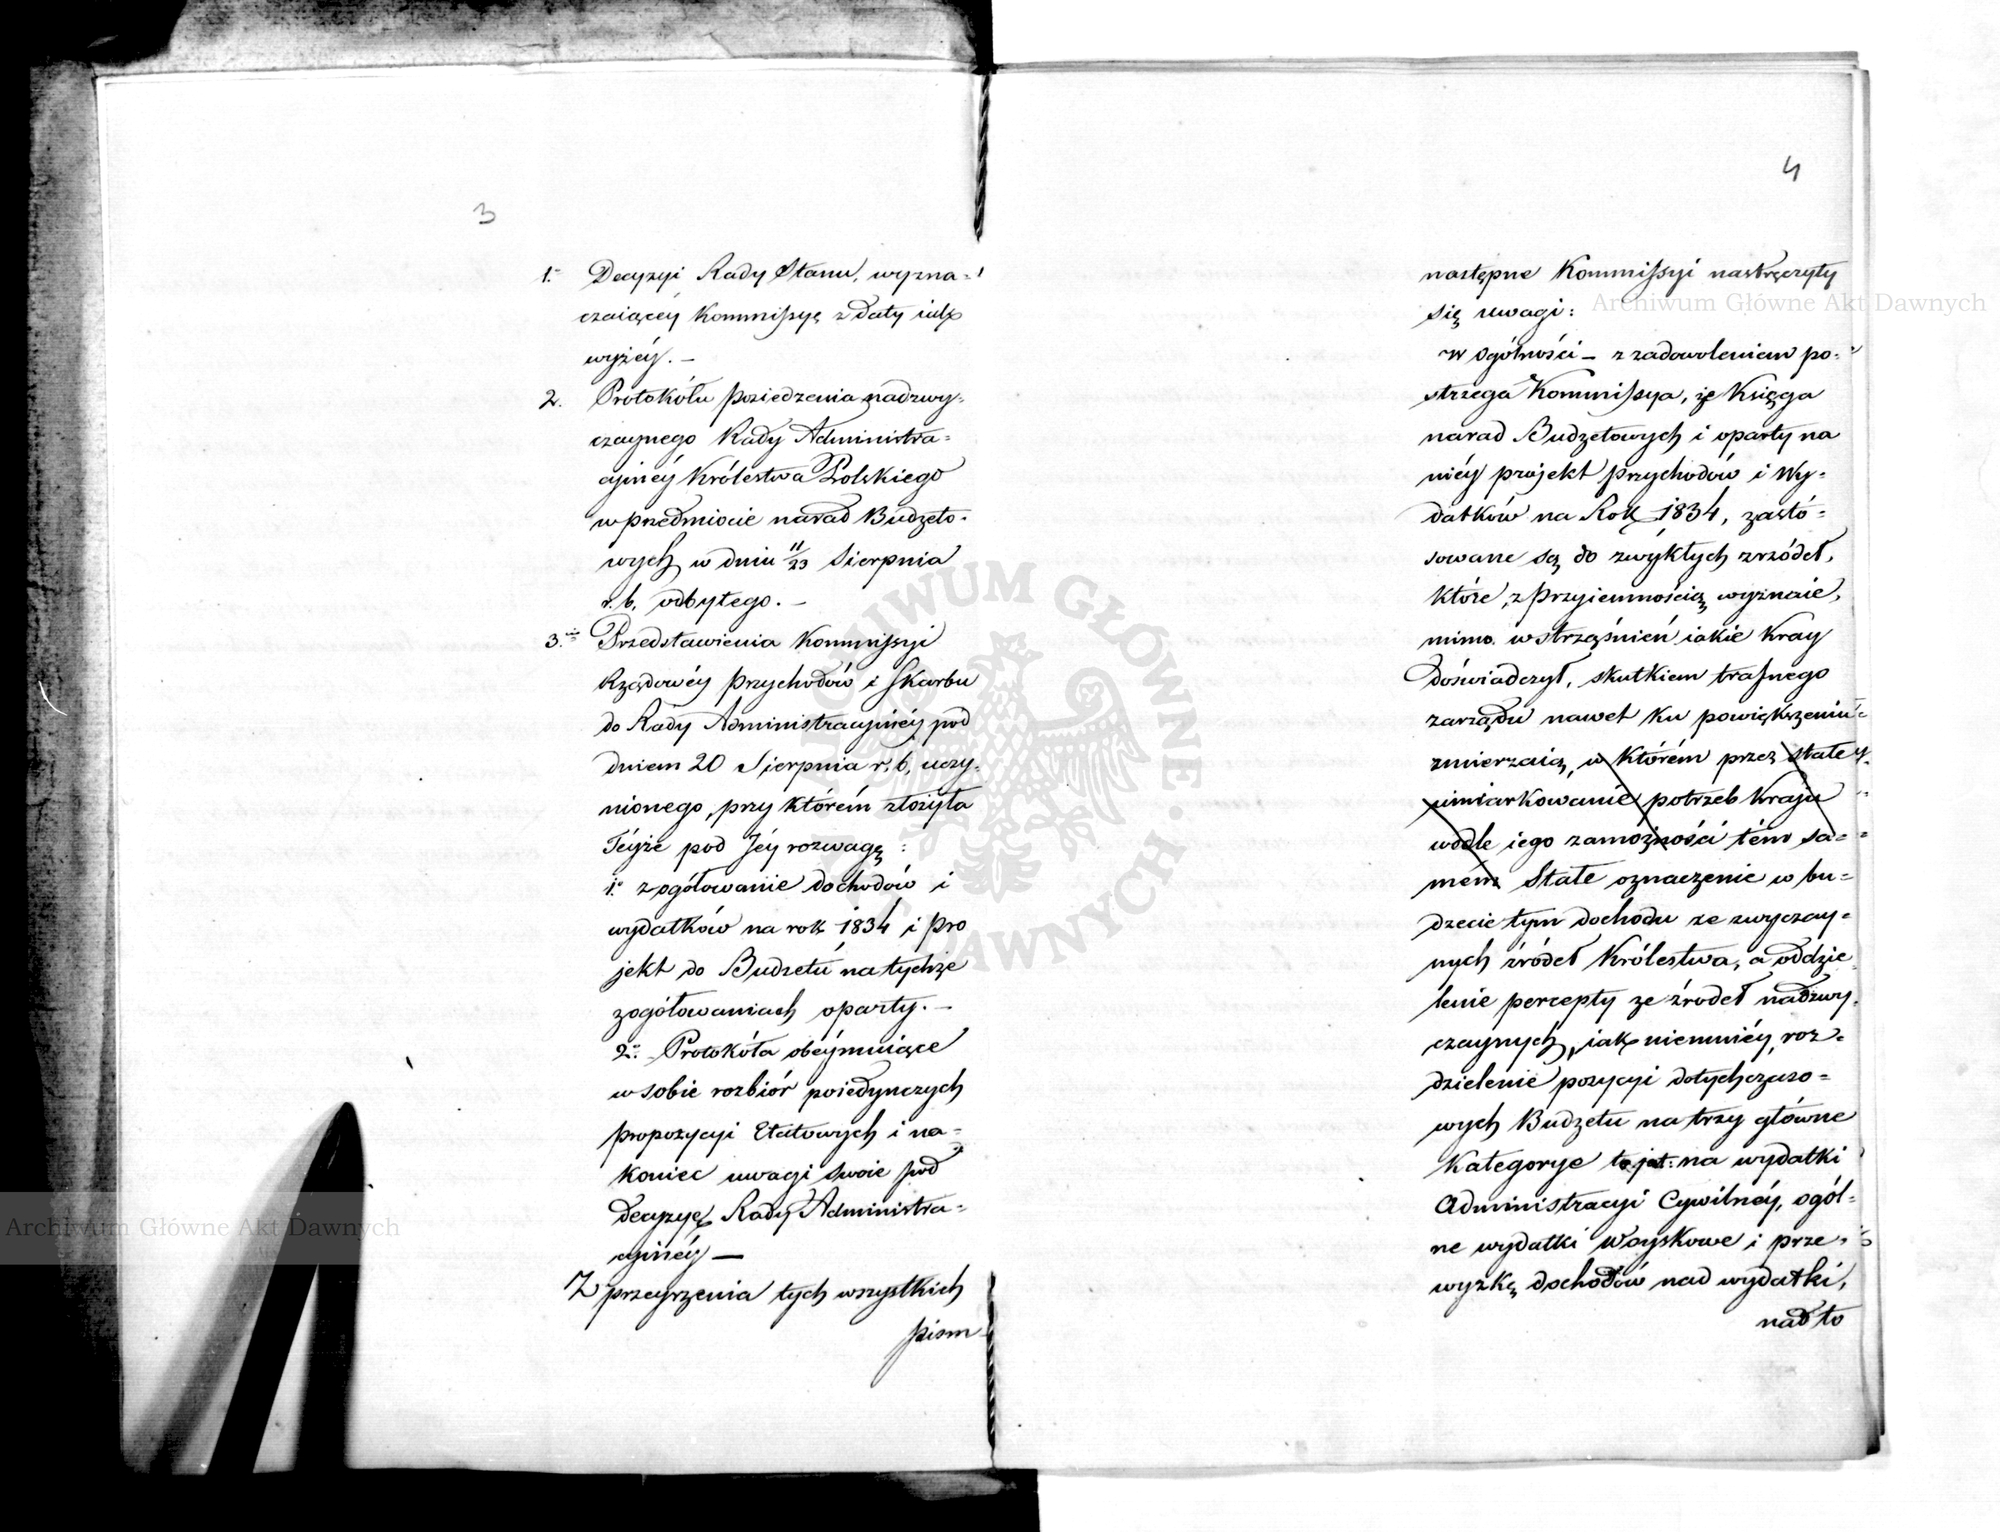 3
1. Decyzyi Rady Stanu, wyzna=
czaiącéy Kommissyę z daty iak
wyżéy. –
2. Protokółu posiedzenia nadzwy-
czaynego Rady Administra=
cyinéy Królestwa Polskiego
w przedmiocie narad Budżeto-
wych w dniu 11/23 Sierpnia
r. b. odbytego. –
3. Przedstawienia Kommissyi
Rządowéy Przychodów i Skarbu
do Rady Administracyinéy pod
dniem 20 Sierpnia r. b. uczy-
nionego, przy którém złożyła
Téyże pod Jéy rozwagę:
1. zogółowanie dochodów i
wydatków na rok 1834 i pro
jekt do Budżetu na tychże
zogółowaniach oparty. –
2. Protokóła obéymuiące
w sobie rozbiór poiedynczych
propozycyi Etatowych i na-
koniec uwagi swoie pod
decyzyę Rady Administra=
cyinéy —
Z przeyrzenia tych wszystkich
pism
4
następne Kommissyi nastręczyły
się uwagi:
w ogólności – z zadowoleniem po-
strzega Kommissya, że Księga
narad Budżetowych i oparty na
niéy projekt przychodów i Wy-
datków na Rok 1834, zastó-
sowane są do zwykłych zrzódeł,
które, z przyiemnością wyznaie,
mimo wstrząśnień iakie Kray
doświadczył, skutkiem trafnego
zarządu nawet ku powiększeniu
zmierzaią, w którém przez stałe
umiarkowanie potrzeb kraju
wedle iego zamożności tém sa=
mém Stałe oznaczenie w bu=
dżecie tym dochodu ze zwyczay=
nych źródeł Królestwa, a oddzie
lenie percepty ze źrodeł nadzwy
czaynych, iak niemniéy roz=
dzielenie pozycyi dotychczaso=
wych Budżetu na trzy główne
Kategorye to jest: na wydatki
Administracyi Cywilnéy, ogól=
ne wydatki Woyskowe i prze-
wyżkę dochodów nad wydatki,
nadto
Archiwum Główne Akt Dawnych
Archiwum Główne Akt Dawnych
ARCHIWUM GŁÓWNE AKT DAWNYCH